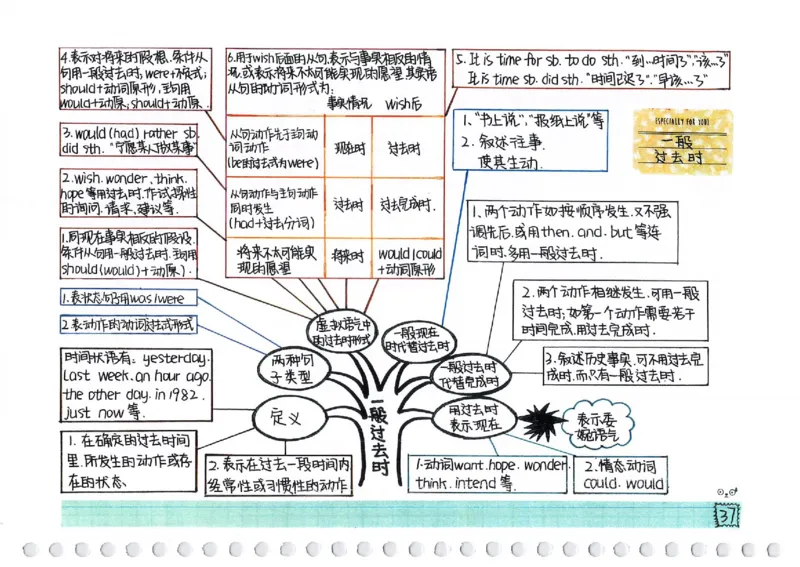 4.表示对将来的假想.条件从
句用一般过去时;were+不定式;
should+动词原形,主句用
would+动原;should+动原.
6.用于wish后面的从句,表示与事实相反的情
况,或表示将来不太可能实现的愿望.其宾语
从句的动词形式为:
事实情况 wish后
从句动作先于主句动
词动作
(be的过去式为were)
现在时
过去时
从句动作与主句动作
同时发生
(had+过去分词)
过去时
过去完成时.
将来不太可能实
现的愿望
将来时
would|could
+动词原形
5. It is time for sb. to do sth. "到…时间了""该…了"
It is time sb. did sth. "时间已迟了""早该…了"
3. would (had) rather sb.
did sth. "宁愿某人做某事"
2. wish. wonder. think.
hope 等用过去时.作试探性
的询问.请求.建议等.
1.同现在事实相反的假设.
条件从句用一般过去时.主句用
should(would)+动原.
1、"书上说"、"报纸上说"等
2. 叙述往事.
使其生动.
ESPECIALLY FOR YOU!
一般
过去时
1、两个动作如按顺序发生.又不强
调先后.或用then. and. but 等连
词时.多用一般过去时.
2. 两个动作相继发生.可用一般
过去时;如第一个动作需要若干
时间完成.用过去完成时.
3.叙述历史事实.可不用过去完
成时.而只有一般过去时.
1.表状态句子用was|were
2.表动作的动词过去式形式
时间状语有: yesterday.
last week. an hour ago.
the other day. in 1982.
just now 等.
1. 在确定的过去时间
里.所发生的动作或存
在的状态.
2.表示在过去一段时间内
经常性或习惯性的动作
虚拟语气中
的过去时形式
一般现在
时代替过去时
两种句
子类型
一般过去时
代替完成时
定义
用过去时
表示现在
表示委
婉语气
一般过去时
1.动词want. hope. wonder.
think. intend 等.
2.情态动词
could. would.
37